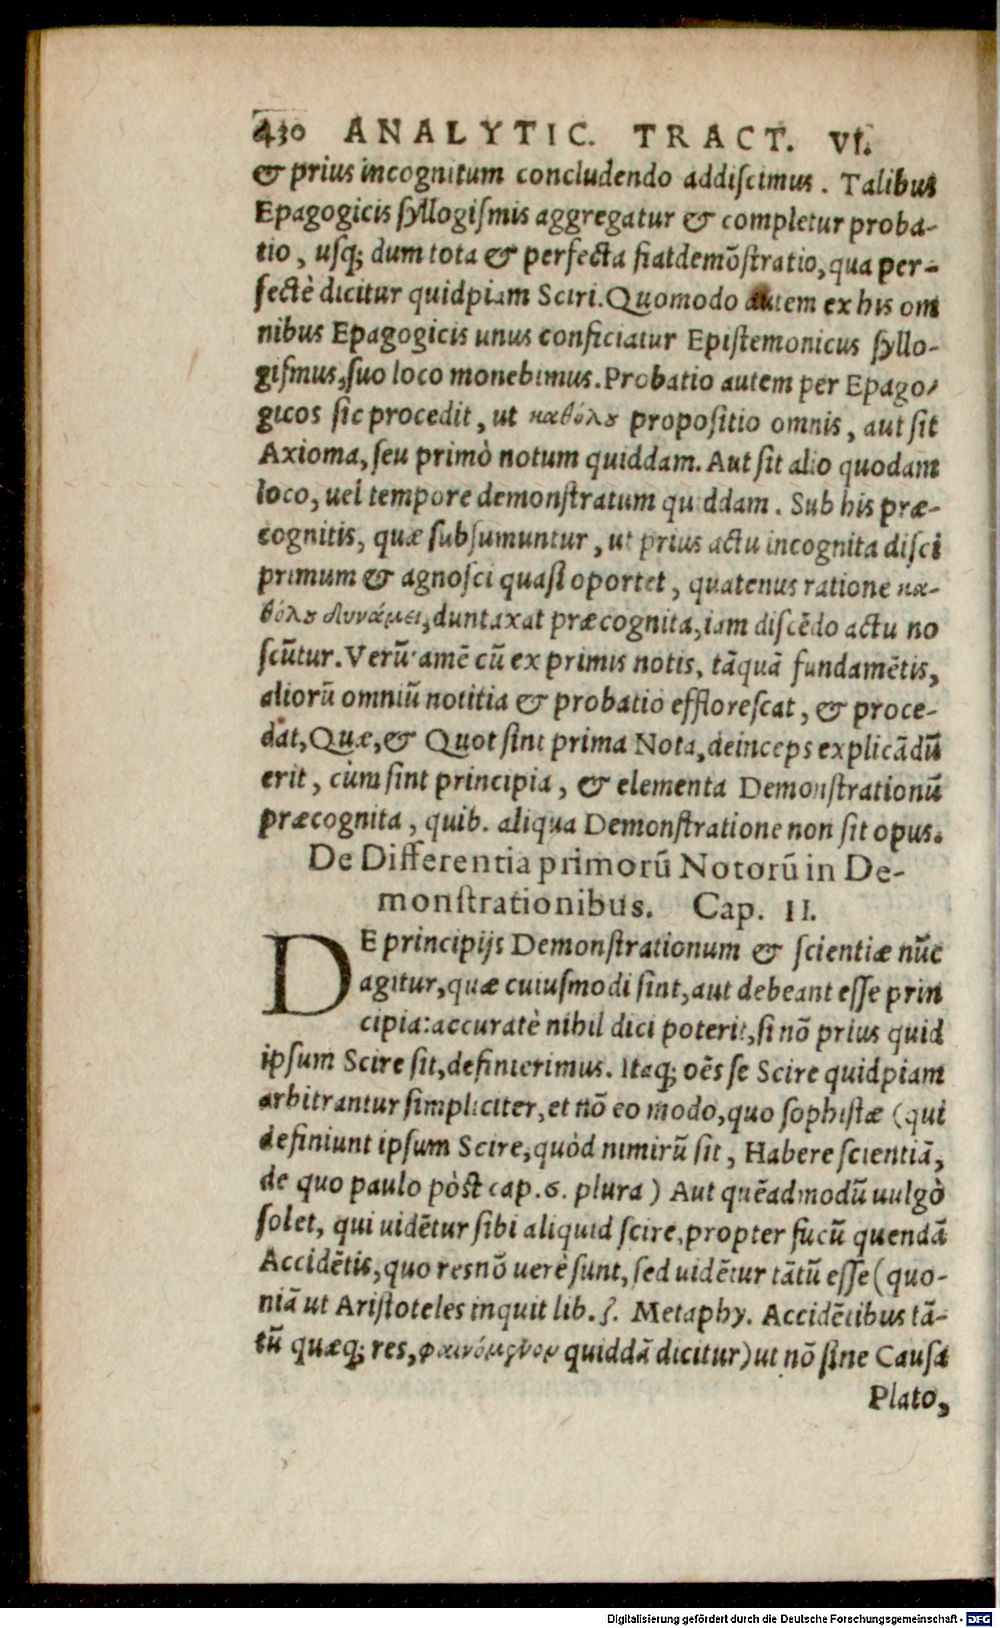 430 ANALYTIC. TRACT. VI.
& prius incognitum concludendo addiſcimus. Talibus
Epagogicis ſyllogiſmis aggregatur & completur proba-
tio, uſq; dum tota & perfecta fiat demõſtratio, qua per-
fectè dicitur quidpiam Sciri. Quomodo autem ex his om
nibus Epagogicis unus conficiatur Epiſtemonicus ſyllo-
giſmus, ſuo loco monebimus. Probatio autem per Epago-
gicos ſic procedit, ut καθόλου propoſitio omnis, aut ſit
Axioma, ſeu primò notum quiddam. Aut ſit alio quodam
loco, uel tempore demonſtratum quiddam. Sub his præ-
cognitis, quæ ſubſumuntur, ut prius actu incognita diſci
primum & agnoſci quaſi oportet, quatenus ratione κα-
θόλου δυνάμει, duntaxat præcognita, iam diſcẽdo actu no
ſcũtur. Verũ tamẽ cũ ex primis notis, tãquã fundamẽtis,
aliorũ omniũ notitia & probatio effloreſcat, & proce-
dat, Quæ, & Quot ſint prima Nota, deinceps explicãdũ
erit, cùm ſint principia, & elementa Demonſtrationũ
præcognita, quib. aliqua Demonſtratione non ſit opus.
De Differentia primorũ Notorũ in De-
monſtrationibus. Cap. II.
DE principijs Demonſtrationum & ſcientiæ nũc
agitur, quæ cuiuſmodi ſint, aut debeant eſſe prin
cipia: accuratè nihil dici poterit, ſi nõ prius quid
ipſum Scire ſit, definierimus. Itaq; oẽs ſe Scire quidpiam
arbitrantur ſimpliciter, et nõ eo modo, quo ſophiſtæ (qui
definiunt ipſum Scire, quòd nimirũ ſit, Habere ſcientiã,
de quo paulo pòſt cap. 6. plura) Aut quẽadmodũ uulgò
ſolet, qui uidẽtur ſibi aliquid ſcire, propter fucũ quendã
Accidẽtis, quo res nõ uerè ſunt, ſed uidẽtur tãtũ eſſe (quo-
niã ut Ariſtoteles inquit lib. 5. Metaphy. Accidẽtibus tã-
tũ quæq; res, φαινόμενον quiddã dicitur) ut nõ ſine Cauſa
Plato,
Digitalisierung gefördert durch die Deutsche Forschungsgemeinschaft - DFG